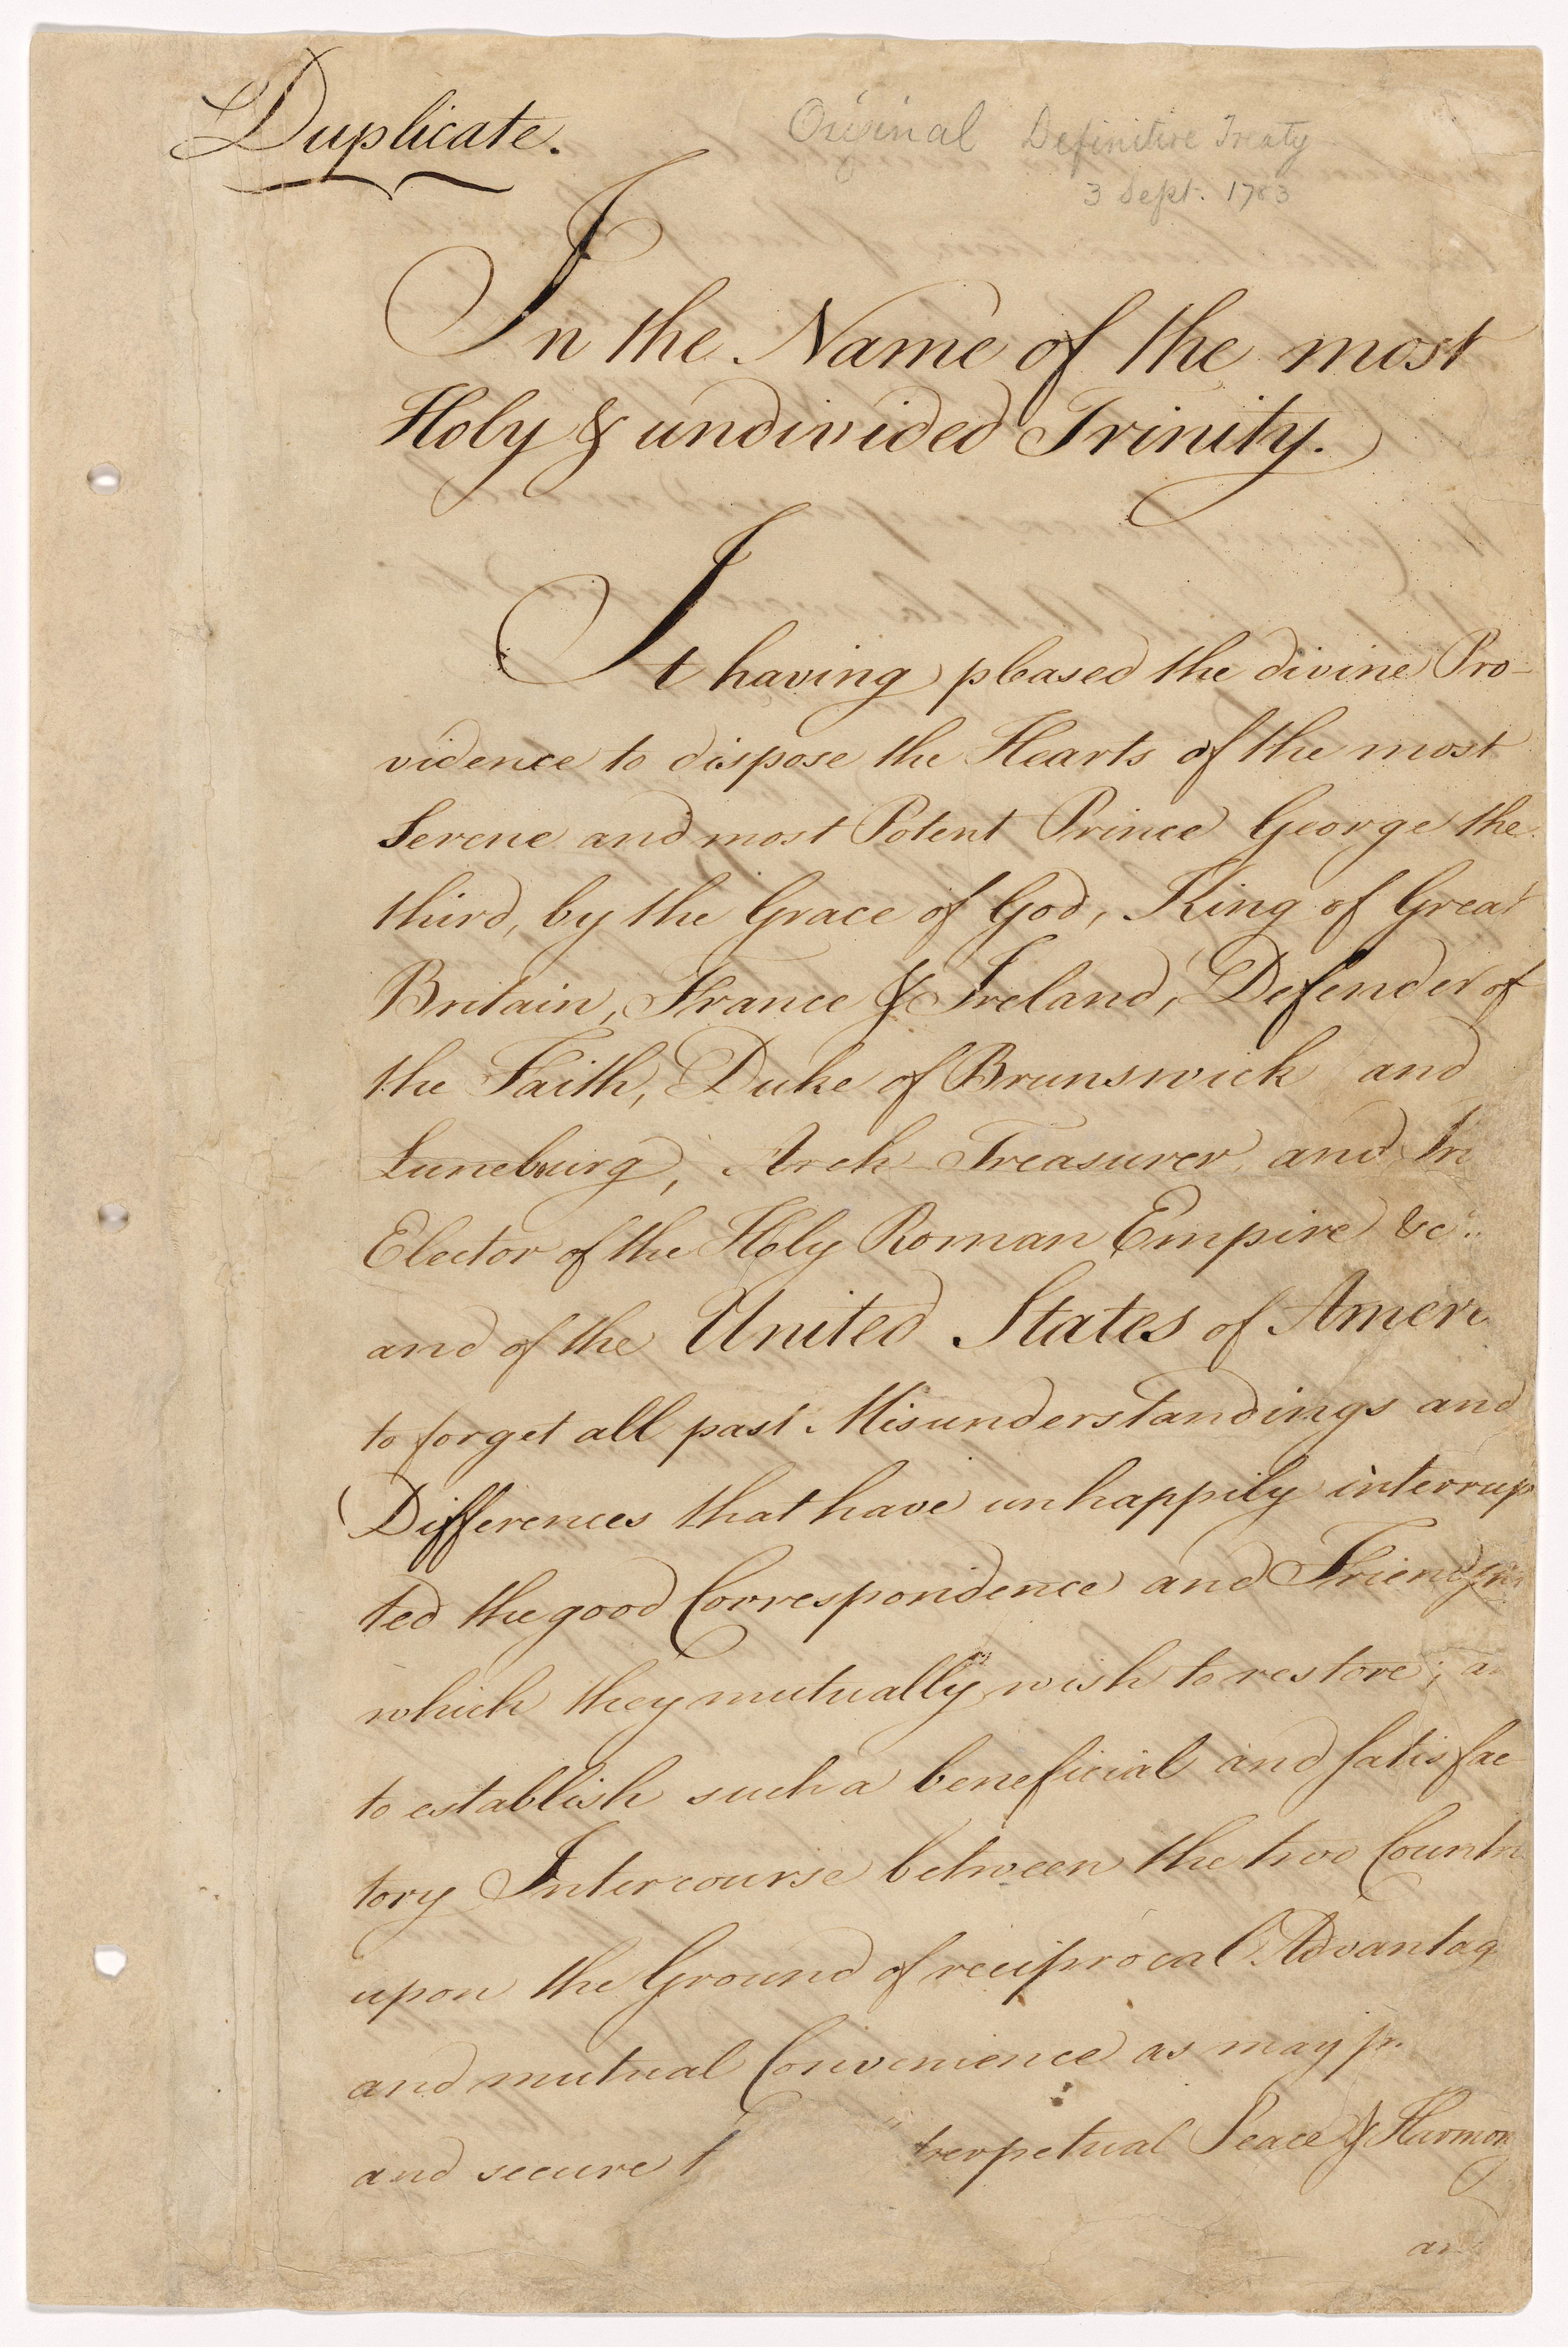 Duplicate.
Original Definitive Treaty
3 Sept. 1783
In the Name of the most
Holy & undivided Trinity.
It having pleased the divine Pro-
vidence to dispose the Hearts of the most
Serene and most Potent Prince George the
third, by the Grace of God, King of Great
Britain, France & Ireland, Defender of
the Faith, Duke of Brunswick and
Luneburg, Arch Treasurer and
Elector of the Holy Roman Empire &c.
and of the United States of Ameri
to forget all past Misunderstandings and
Differences that have unhappily interrup
ted the good Correspondence and Friendship
which they mutually wish to restore;
to establish such a beneficial and satisfac
tory Intercourse between the two Countri
upon the Ground of reciprocal Advantag
and mutual Convenience as may
and secure perpetual Peace & Harmon